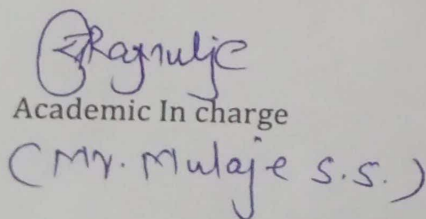 Academic In charge
(Mr. Mulaje S.S.)